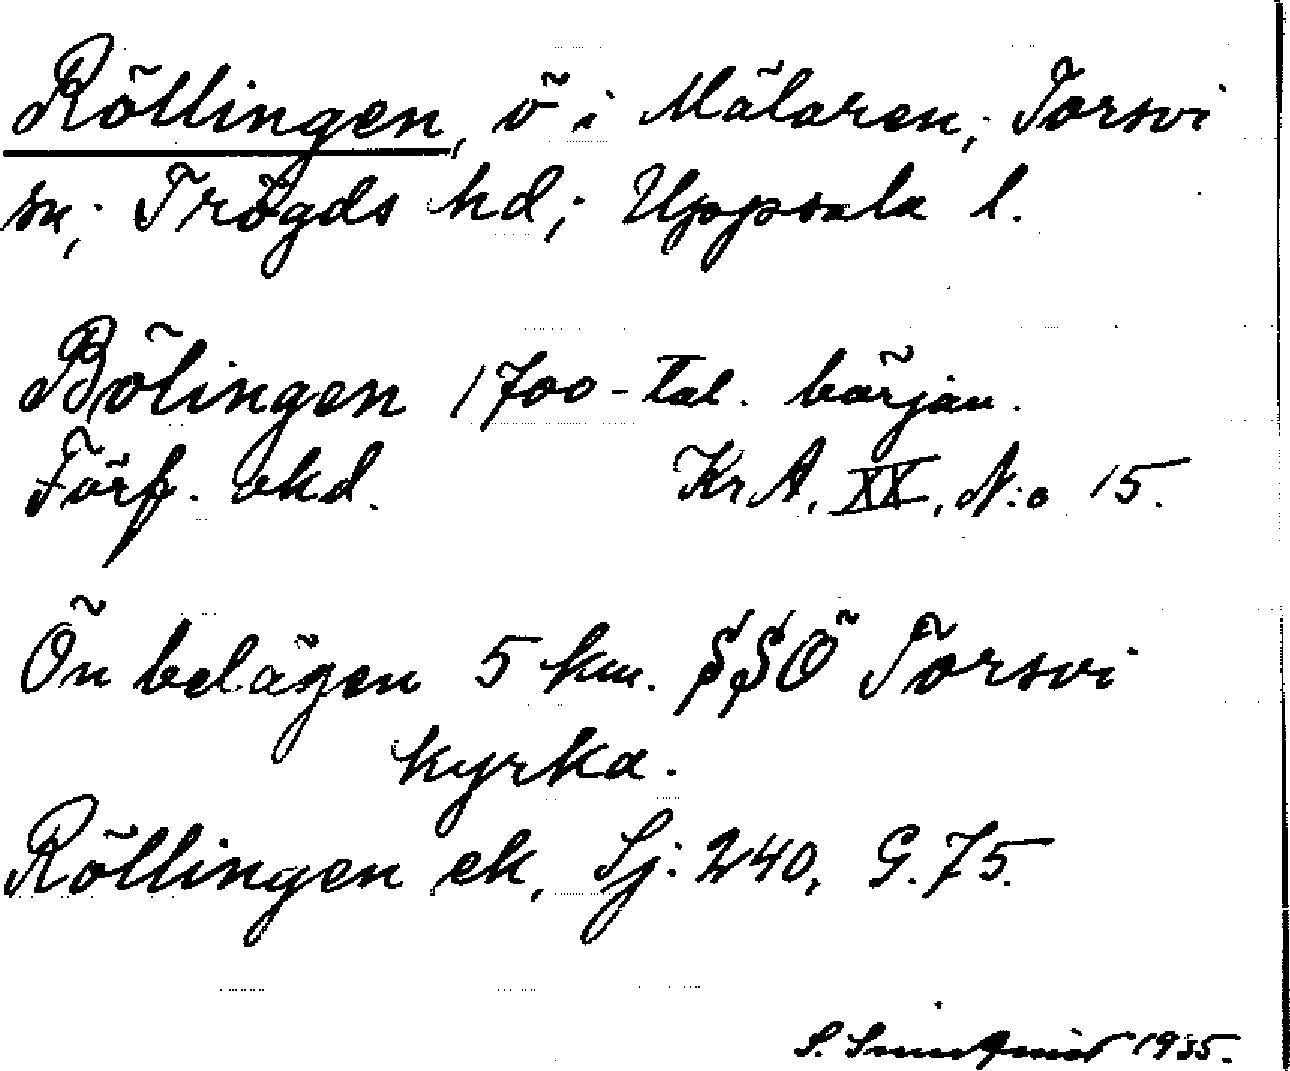 Röllingen, ö i Mälaren, Torsvi
sn; Trögds hd; Uppsala l.
Bölingen 1700-tal. början.
Förf. okd. Kr A, XX, N:o 15.
Ön belägen 5 km. SSÖ Torsvi
kyrka.
Röllingen ek, Sj: 240, G. 75.
S. 1935.